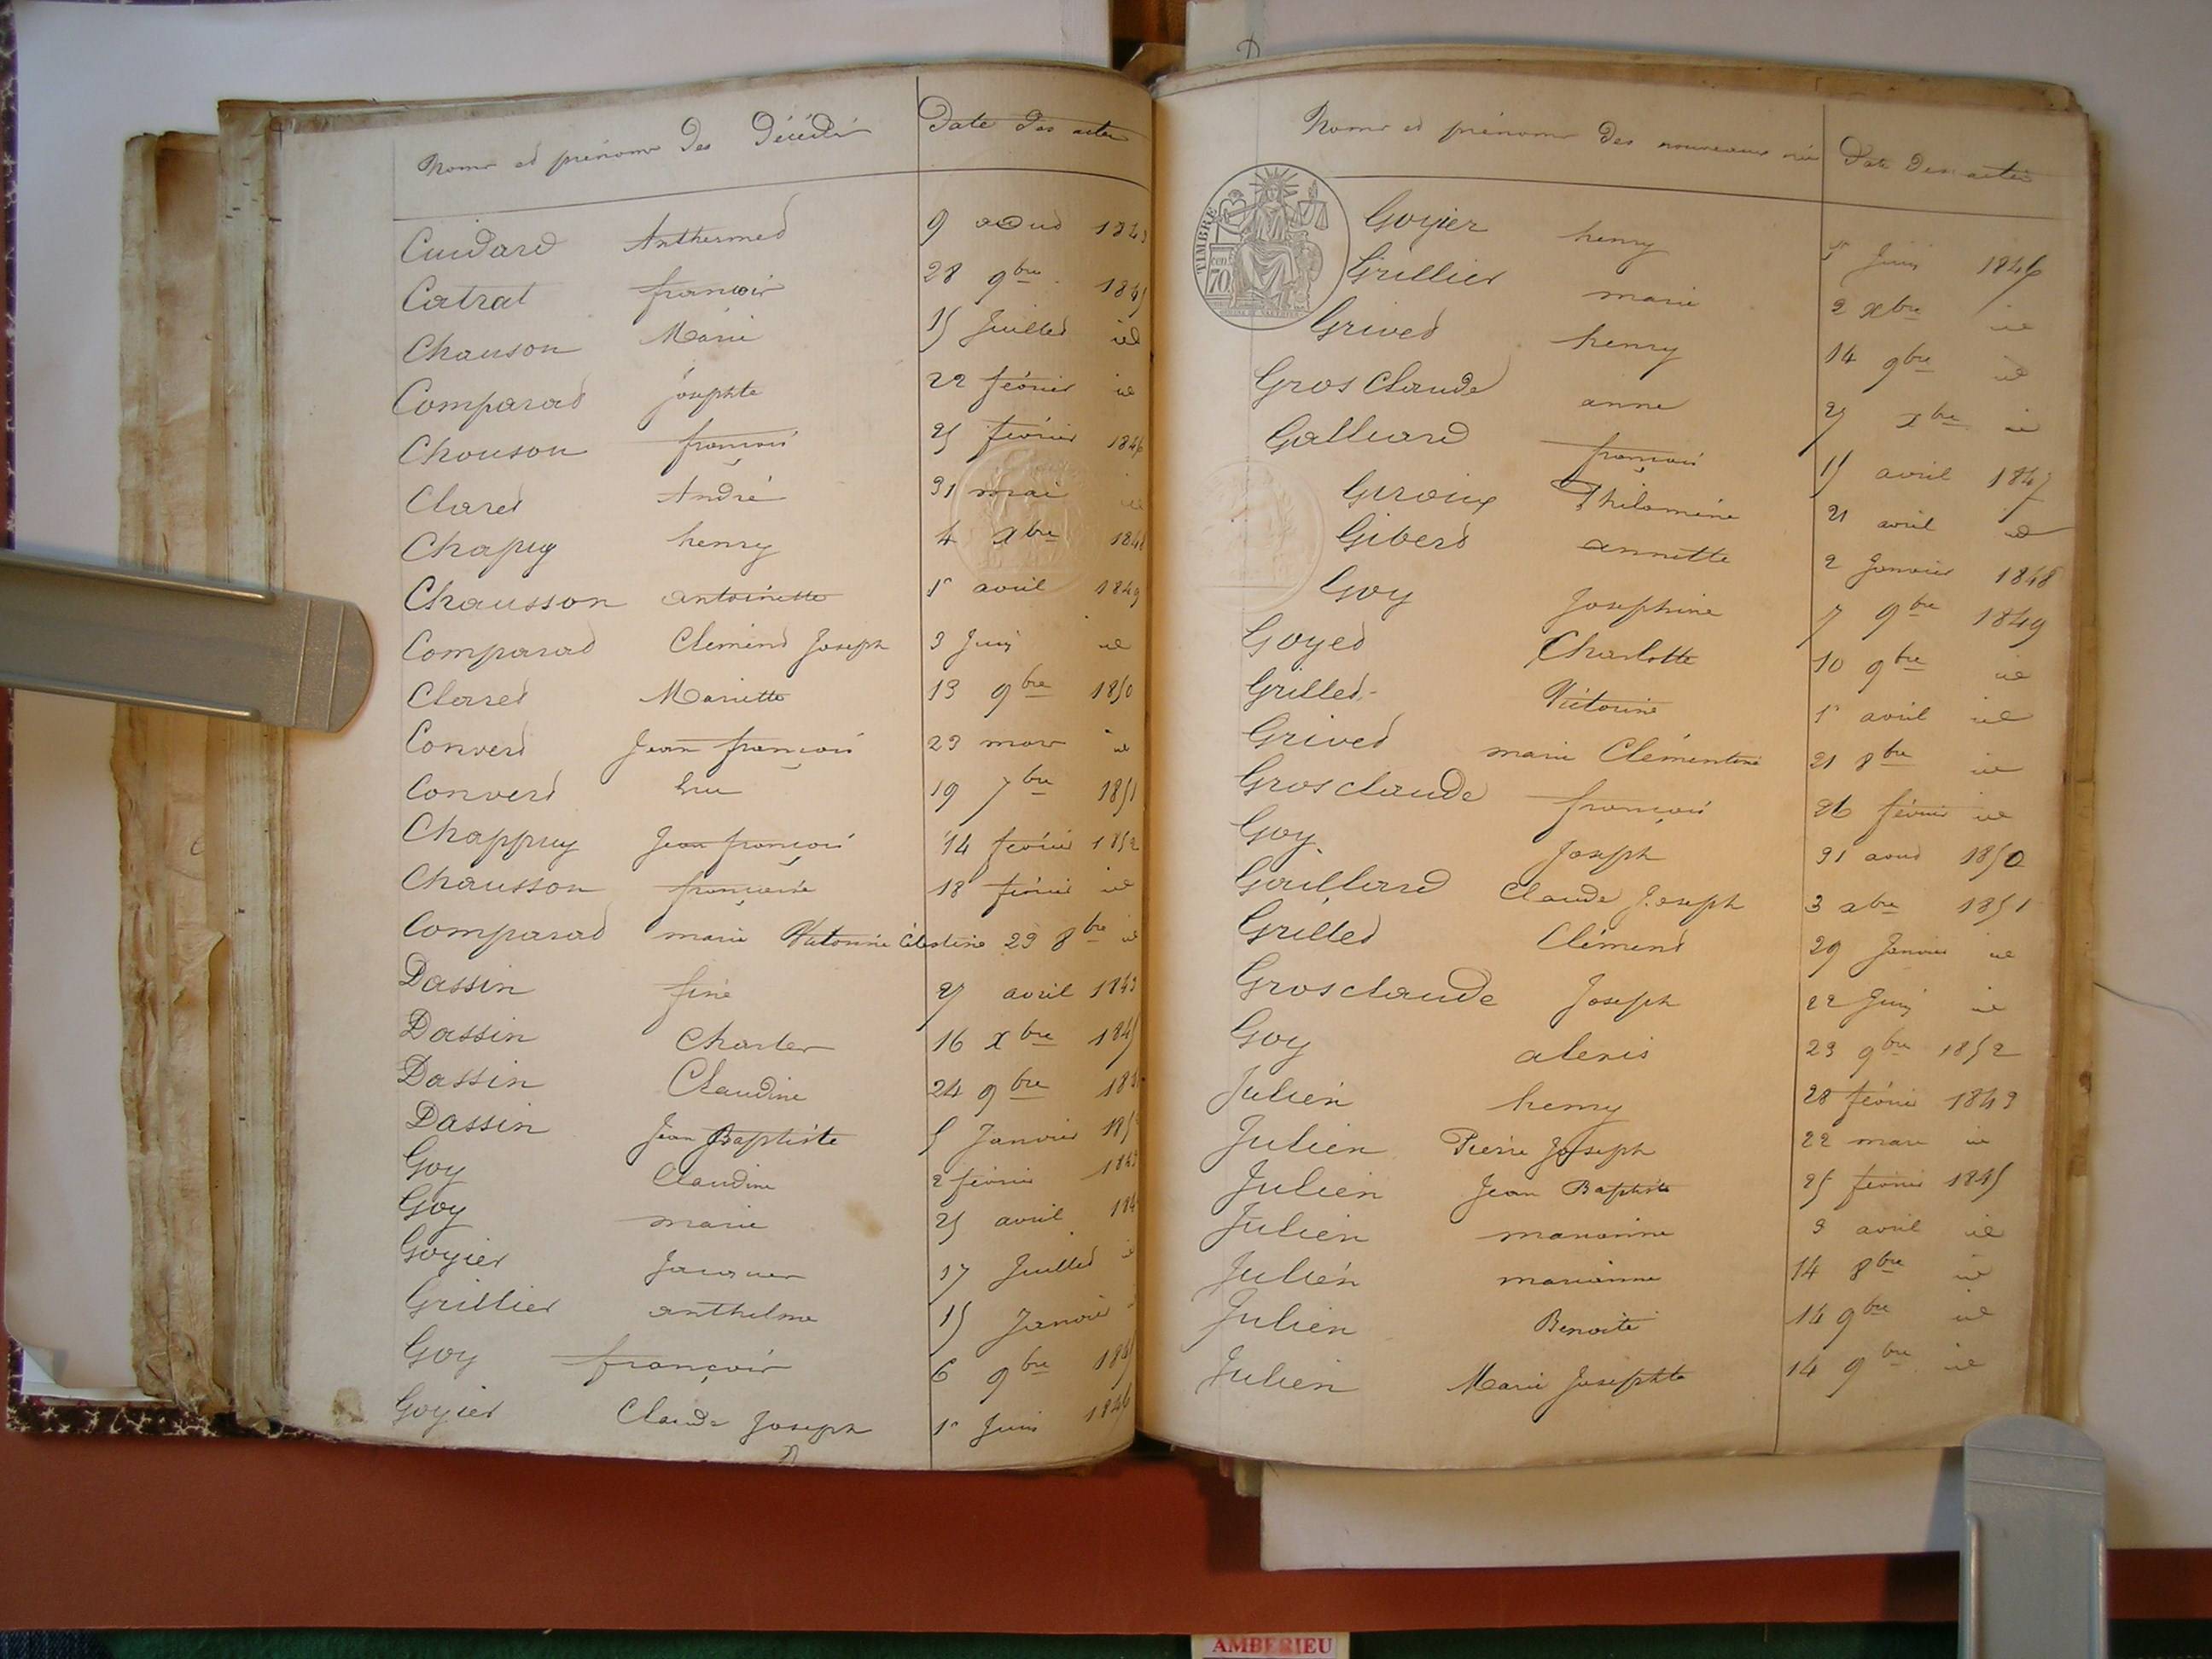 Noms et prénoms des Décédés Date des actes
Cuidard Anthermed 9 aout 184
Catrat françois 28 9bre 1845
Chauson Marie 15 Juillet id
Comparat Josephte 22 février id
Chouson françois 25 février 1846
Claret André 31 mai id
Chapuy henry 4 xbre 184
Chausson antoinette 1r avril 1849
Comparat Clement Joseph 3 Juin id
Claret Mariette 13 9bre 1850
Convert Jean françois 23 mars id
Convert 19 7bre 1851
Chappuy Jean françois 14 février 1852
Chausson françoise 18 février id
Comparat marie Victorine Célestine 29 8bre id
Dassin fine 27 avril 1843
Dassin Charles 16 xbre 1845
Dassin Claudine 24 9bre 18
Dassin Jean Baptiste 5 Janvier 185
Goy Claudine 2 février 1843
Goy marie 25 avril 184
Goyier Jacques 17 Juillet id
Grillier anthelme 15 Janvier
Goy françois 6 9bre 1845
Goyier Claude Joseph 1r Juin 1846
Noms et prénoms des nouveaux nés Date des actes
TIMBRE
70 cent
Goyier henry 1r Juin 1846
Grillier marie 2 xbre id
Grivet henry 14 9bre id
Gros Claude anne 27 xbre id
Galliard françois 15 avril 1847
Giroux Philomène 21 avril id
Gibert annette 2 Janvier 1848
Goy Josephine 7 9bre 1849
Goyet Charlotte 10 9bre id
Grillet Victorine 1r avril id
Grivet marie Clémentine 21 8bre id
Grosclaude françois 26 février id
Goy Joseph 31 aout 1850
Gaillard Claude Joseph 3 xbre 1851
Grillet Clément 29 Janvier id
Grosclaude Joseph 22 Juin id
Goy alexis 23 9bre 1852
Julien henry 28 février 1843
Julien Pierre Joseph 22 mars id
Julien Jean Baptiste 25 février 1845
Julien marianne 3 avril id
Julien marianne 14 8bre id
Julien Benoite 14 9bre id
Julien Marie Josephte 14 9bre id
AMBERIEU